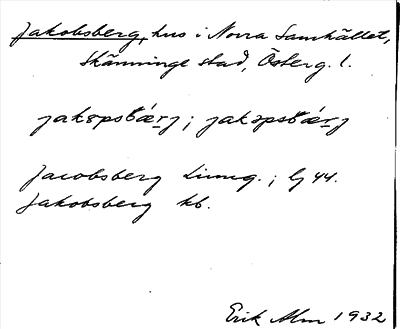 Jakobsberg, hus i Norra Samhället,
Skänninge stad, Österg. l.
jakɐpsbárj; jakɔpsbárj
Jacobsberg Linng.; Lj 44.
Jakobsberg kb.
Erik Alm 1932